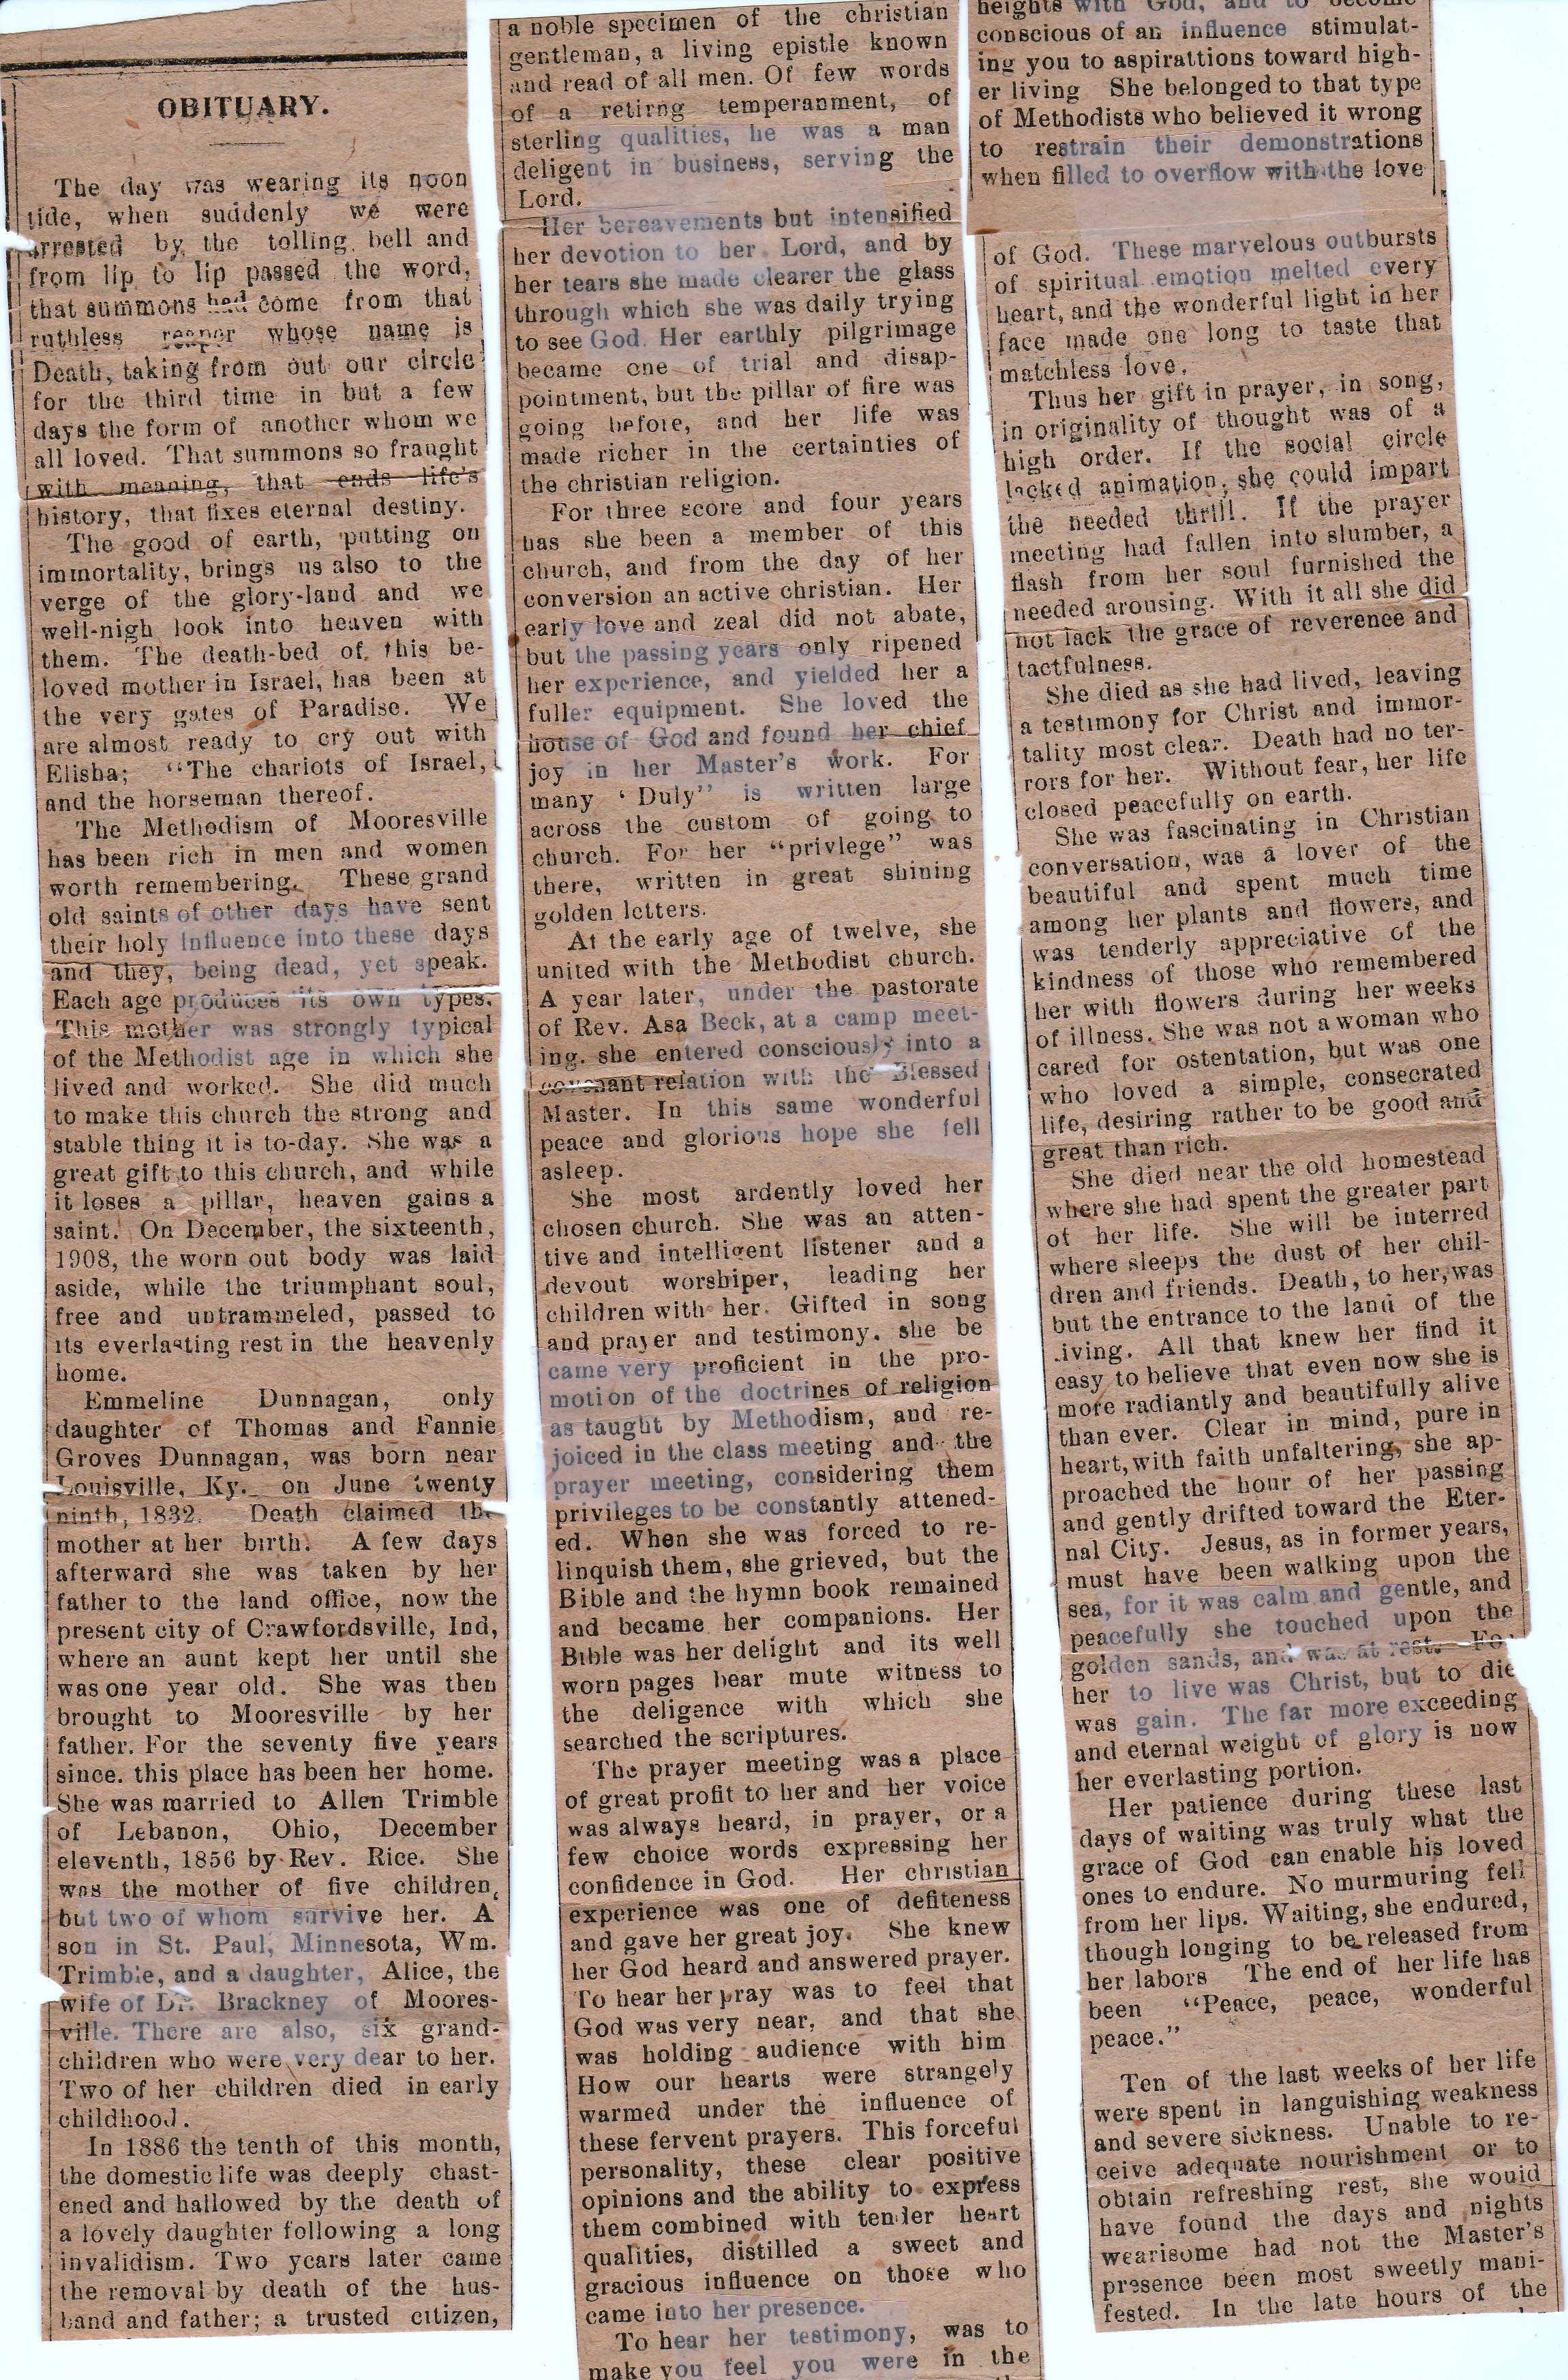 OBITUARY.
The day was wearing its noon
tide, when suddenly we were
arrested by the tolling bell and
from lip to lip passed the word,
that summons had come from that
ruthless reaper whose name is
Death, taking from out our circle
for the third time in but a few
days the form of another whom we
all loved. That summons so fraught
with meaning, that ends life's
history, that fixes eternal destiny.
The good of earth, putting on
immortality, brings us also to the
verge of the glory-land and we
well-nigh look into heaven with
them. The death-bed of this be-
loved mother in Israel, has been at
the very gates of Paradise. We
are almost ready to cry out with
Elisha; "The chariots of Israel,
and the horseman thereof.
The Methodism of Mooresville
has been rich in men and women
worth remembering. These grand
old saints of other days have sent
their holy influence into these days
and they, being dead, yet speak.
Each age produces its own types.
This mother was strongly typical
of the Methodist age in which she
lived and worked. She did much
to make this church the strong and
stable thing it is to-day. She was a
great gift to this church, and while
it loses a pillar, heaven gains a
saint. On December, the sixteenth,
1908, the worn out body was laid
aside, while the triumphant soul,
free and untrammeled, passed to
its everlasting rest in the heavenly
home.
Emmeline Dunnagan, only
daughter of Thomas and Fannie
Groves Dunnagan, was born near
Louisville, Ky. on June twenty
ninth, 1832. Death claimed the
mother at her birth. A few days
afterward she was taken by her
father to the land office, now the
present city of Crawfordsville, Ind,
where an aunt kept her until she
was one year old. She was then
brought to Mooresville by her
father. For the seventy five years
since. this place has been her home.
She was married to Allen Trimble
of Lebanon, Ohio, December
eleventh, 1856 by Rev. Rice. She
was the mother of five children,
but two of whom survive her. A
son in St. Paul, Minnesota, Wm.
Trimble, and a daughter, Alice, the
wife of Dr. Brackney of Moores-
ville. There are also, six grand-
children who were very dear to her.
Two of her children died in early
childhood.
In 1886 the tenth of this month,
the domestic life was deeply chast-
ened and hallowed by the death of
a lovely daughter following a long
invalidism. Two years later came
the removal by death of the hus-
band and father; a trusted citizen,
a noble specimen of the christian
gentleman, a living epistle known
and read of all men. Of few words
of a retirng temperanment, of
sterling qualities, he was a man
deligent in business, serving the
Lord.
Her bereavements but intensified
her devotion to her Lord, and by
her tears she made clearer the glass
through which she was daily trying
to see God. Her earthly pilgrimage
became one of trial and disap-
pointment, but the pillar of fire was
going before, and her life was
made richer in the certainties of
the christian religion.
For three score and four years
has she been a member of this
church, and from the day of her
conversion an active christian. Her
early love and zeal did not abate,
but the passing years only ripened
her experience, and yielded her a
fuller equipment. She loved the
house of God and found her chief
joy in her Master's work. For
many 'Duly" is written large
across the custom of going to
church. For her "privlege" was
there, written in great shining
golden letters.
At the early age of twelve, she
united with the Methodist church.
A year later, under the pastorate
of Rev. Asa Beck, at a camp meet-
ing. she entered consciously into a
covenant relation with the Blessed
Master. In this same wonderful
peace and glorious hope she fell
asleep.
She most ardently loved her
chosen church. She was an atten-
tive and intelligent listener and a
devout worshiper, leading her
children with her. Gifted in song
and prayer and testimony. she be
came very proficient in the pro-
motion of the doctrines of religion
as taught by Methodism, and re-
joiced in the class meeting and the
prayer meeting, considering them
privileges to be constantly attened-
ed. When she was forced to re-
linquish them, she grieved, but the
Bible and the hymn book remained
and became her companions. Her
Bible was her delight and its well
worn pages bear mute witness to
the deligence with which she
searched the scriptures.
The prayer meeting was a place
of great profit to her and her voice
was always heard, in prayer, or a
few choice words expressing her
confidence in God. Her christian
experience was one of defiteness
and gave her great joy. She knew
her God heard and answered prayer.
To hear her pray was to feel that
God was very near, and that she
was holding audience with him
How our hearts were strangely
warmed under the influence of
these fervent prayers. This forceful
personality, these clear positive
opinions and the ability to express
them combined with tender heart
qualities, distilled a sweet and
gracious influence on those who
came into her presence.
To hear her testimony, was to
make you feel you were in the
heights with God, and to become
conscious of an influence stimulat-
ing you to aspirattions toward high-
er living She belonged to that type
of Methodists who believed it wrong
to restrain their demonstrations
when filled to overflow with the love
of God. These marvelous outbursts
of spiritual emotion melted every
heart, and the wonderful light in her
face made one long to taste that
matchless love.
Thus her gift in prayer, in song,
in originality of thought was of a
high order. If the social circle
lacked animation, she could impart
the needed thrill. If the prayer
meeting had fallen into slumber, a
flash from her soul furnished the
needed arousing. With it all she did
not lack the grace of reverence and
tactfulness.
She died as she had lived, leaving
a testimony for Christ and immor-
tality most clear. Death had no ter-
rors for her. Without fear, her life
closed peacefully on earth.
She was fascinating in Christian
conversation, was a lover of the
beautiful and spent much time
among her plants and flowers, and
was tenderly appreciative of the
kindness of those who remembered
her with flowers during her weeks
of illness. She was not a woman who
cared for ostentation, but was one
who loved a simple, consecrated
life, desiring rather to be good and
great than rich.
She died near the old homestead
where she had spent the greater part
of her life. She will be interred
where sleeps the dust of her chil-
dren and friends. Death, to her, was
but the entrance to the land of the
living. All that knew her find it
easy to believe that even now she is
more radiantly and beautifully alive
than ever. Clear in mind, pure in
heart, with faith unfaltering, she ap-
proached the hour of her passing
and gently drifted toward the Eter-
nal City. Jesus, as in former years,
must have been walking upon the
sea, for it was calm and gentle, and
peacefully she touched upon the
golden sands, and was at rest. For
her to live was Christ, but to die
was gain. The far more exceeding
and eternal weight of glory is now
her everlasting portion.
Her patience during these last
days of waiting was truly what the
grace of God can enable his loved
ones to endure. No murmuring fell
from her lips. Waiting, she endured,
though longing to be released from
her labors The end of her life has
been "Peace, peace, wonderful
peace."
Ten of the last weeks of her life
were spent in languishing weakness
and severe sickness. Unable to re-
ceive adequate nourishment or to
obtain refreshing rest, she would
have found the days and nights
wearisome had not the Master's
presence been most sweetly mani-
fested. In the late hours of the